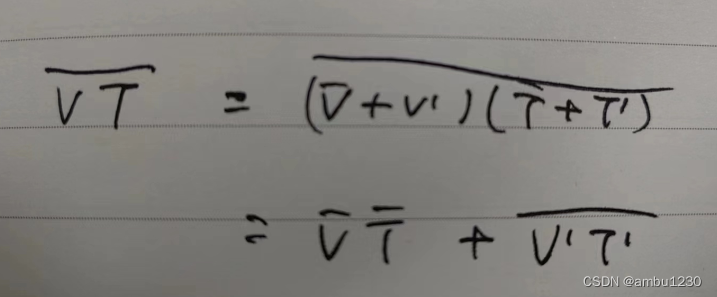 $\overline{VT} = \overline{(\bar{V}+V')(\bar{T}+T')}$
$= \bar{V}\,\bar{T} + \overline{V'T'}$
CSDN @ambu1230